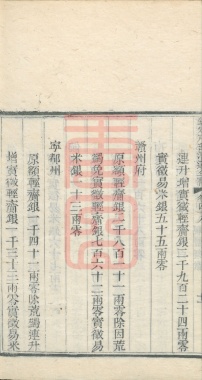 連升增實徵輕齎銀三千九百二十四兩零
實徵易米銀五十五兩零
贛州府
原額輕齎銀一千八百一十一兩零除因荒
蠲免實徵輕齎銀七百六十二兩零實徵易
米銀一十三兩零
寧都州
原額輕齎銀一千四十一兩零除荒蠲連升
增實徵輕齎銀一千三十三兩零實徵易米